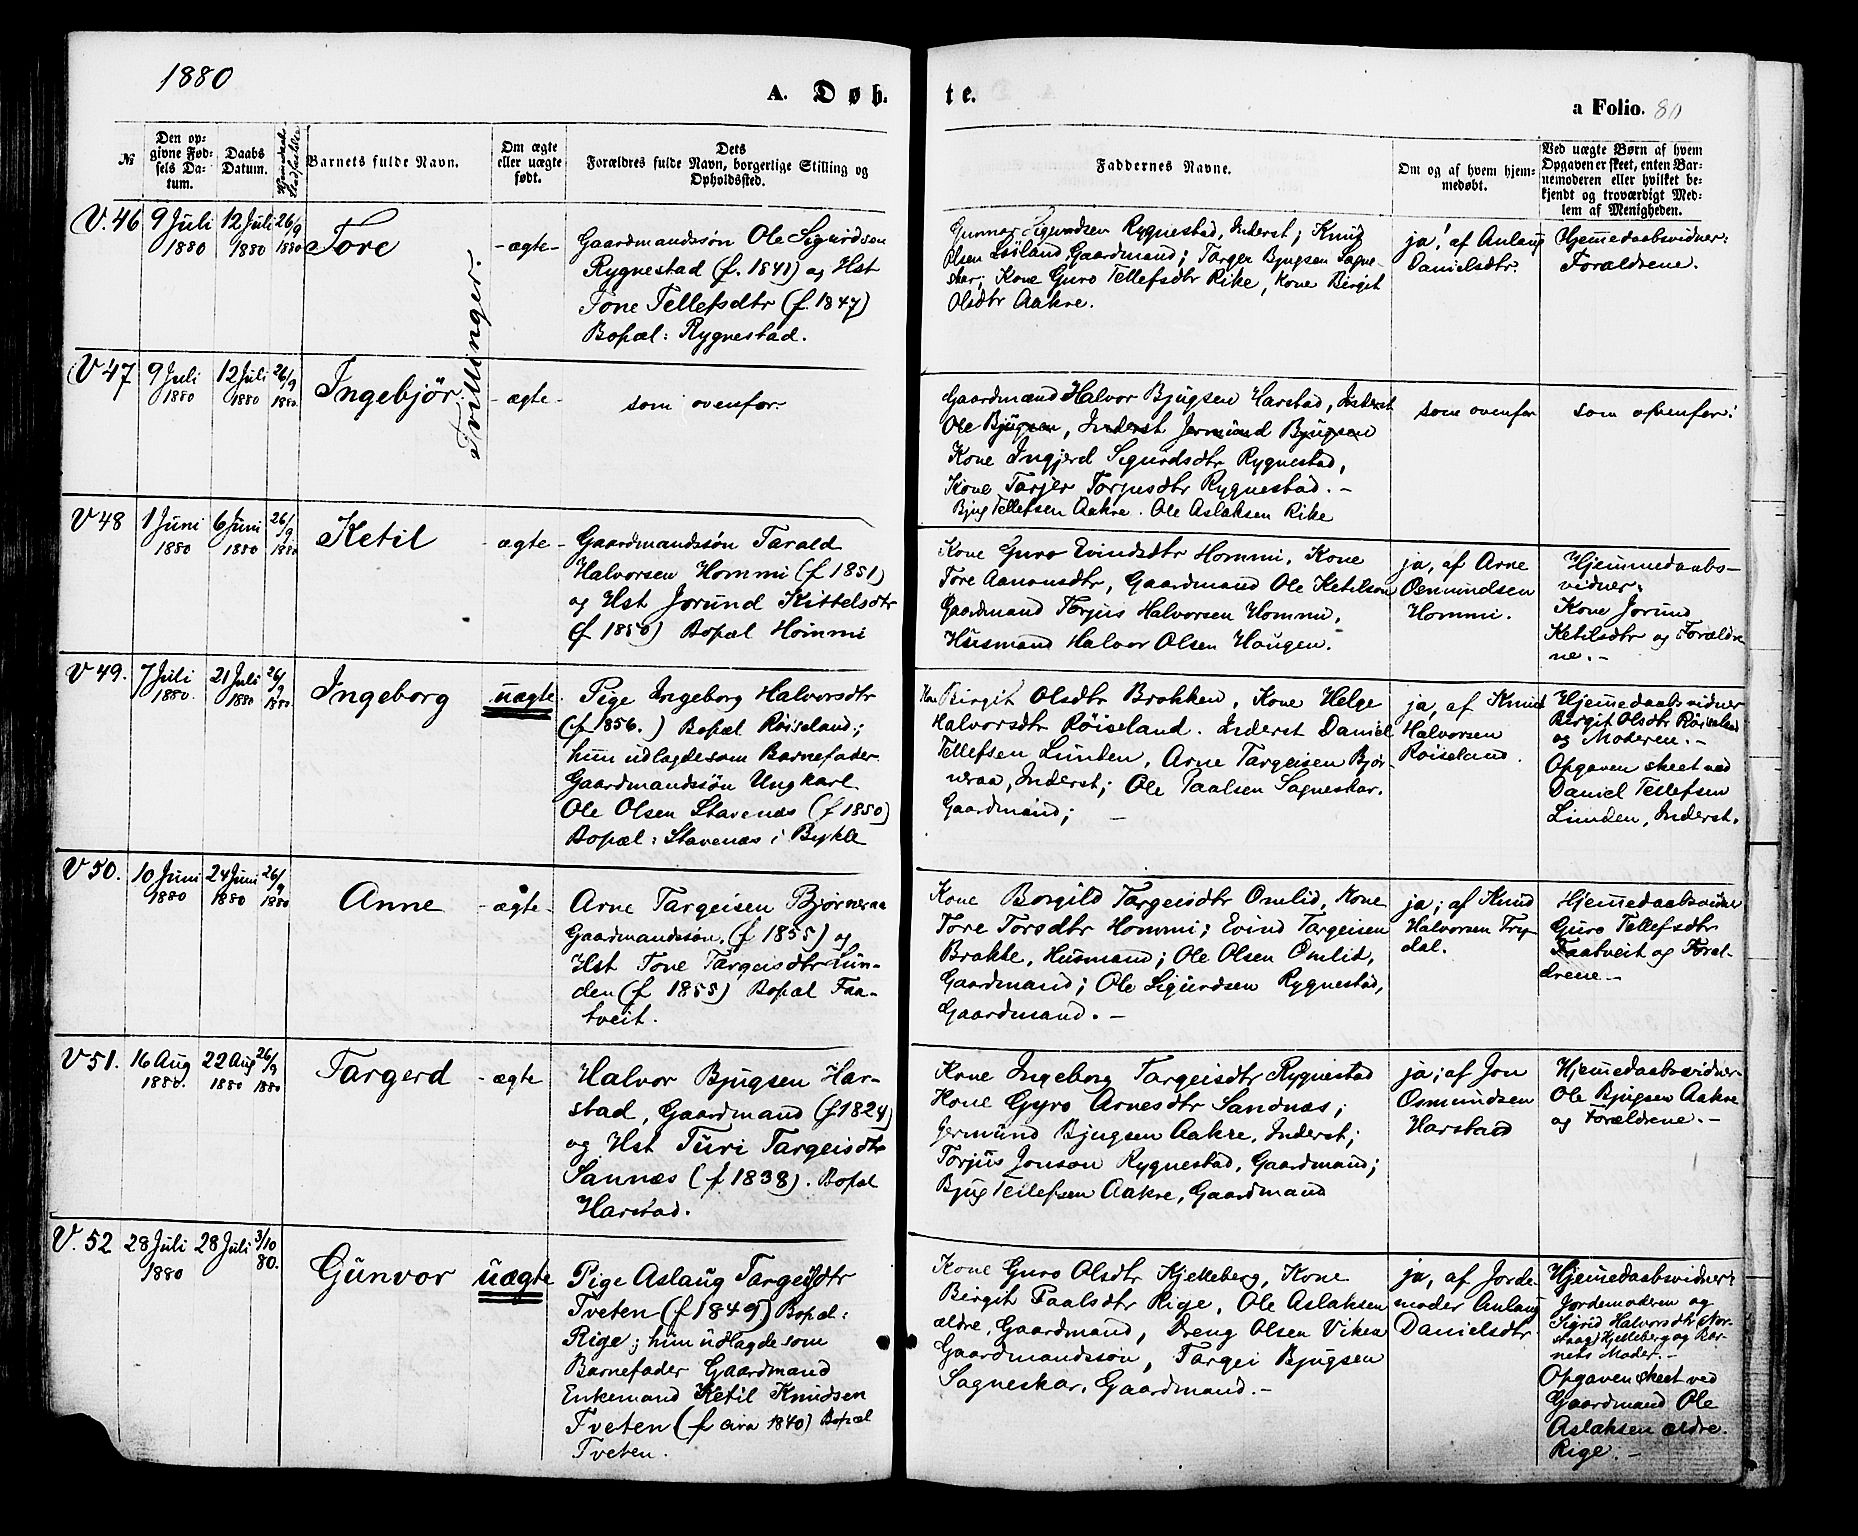 1880
A. Døb-
te.
a Folio. 80
№
Den op-
givne Fød-
sels Da-
tum.
Daabs
Datum.
Barnets fulde Navn.
Om ægte
eller uægte
født.
Dets
Forældres fulde Navn, borgerlige Stilling og
Opholdssted.
Faddernes Navne.
Om og af hvem hjem-
medøbt.
Ved uægte Børn af hvem
Opgaven er skeet, enten Bar-
nemoderen eller hvilket be-
kjendt og troværdigt Med-
lem af Menigheden.
V. 46
9 Juli
1880
12 Juli
1880
26/9
1880
Tore
Tvillinger.
- ægte -
Gaardmandssøn Ole Sigurdsen
Rygnestad (f. 1841) og Hst
Tone Tellefsdtr (f. 1847)
Bopæl: Rygnestad.
Gunnar Sigurdsen Rygnestad, Inderst; Knud
Olsen Løiland Gaardmand; Targei Bjugsen Sagne-
skar; Kone Guro Tellefsdtr Rike, Kone Birgit
Olsdtr Aakre.
ja! af Anlaug
Danielsdtr.
Hjemmedaabsvidner:
Forældrene.
V 47
9 Juli
1880
12 Juli
1880
26/9
1880
Ingebjør.
- ægte -
som ovenfor.
Gaardmand Halvor Bjugsen Harstad, Inderst
Ole Bjugsen, Inderst Jermund Bjugsen
Kone Ingjerd Sigurdsdtr Rygnestad,
Kone Tarjer Torjusdtr Rygnestad. -
Bjug Tellefsen Aakre. Ole Aslaksen Rike
som ovenfor
som ovenfor!
V 48
1 Juni
1880
6 Juni
1880
26/9
1880
Ketil
- ægte -
Gaardmandssøn Tarald
Halvorsen Hommi (f 1851)
og Hst Jorund Kittelsdtr
(f 1850) Bopæl Hommi
Kone Guro Evindsdtr Hommi, Kone
Tore Aanonsdtr, Gaardmand Ole Ketilson
Gaardmand Torjus Halvorsen Hommi,
Husmand Halvor Olsen Haugen.
ja, af Arne
Osmundsen
Hommi.
Hjemmedaabs-
vidner:
Kone Jorund
Ketilsdtr og Forældre
ne. -
V 49.
7 Juli
1880.
21 Juli
1880
26/9
1880
Ingeborg
uægte.
Pige Ingeborg Halvorsdtr
(f 1856.) Bopæl Røiseland;
hun udlagde som Barnefader
Gaardmandssøn Ungkarl
Ole Olsen Stavenæs (f 1850)
Bopæl: Stavenæs i Bykle
Kone Birgit Olsdtr Brokken, Kone Helge
Halvorsdtr Røiseland. Inderst Daniel
Tellefsen Lunden, Arne Targeisen Bjør-
neraa, Inderst; Ole Paalsen Sagneskar.
Gaardmand; -
ja, af Knud
Halvorsen
Røiseland.
Hjemmedaabsvidner
Birgit Olsdtr Røiseland
og Moderen. -
Opgaven skeet ved
Daniel Tellefsen
Lunden, Inderst.
V 50.
10 Juni
1880
24 Juni
1880
26/9
1880
Anne
- ægte -
Arne Targeisen Bjørneraa
Gaardmandssøn, (f 1855) og
Hst Tone Targeisdtr Lun-
den (f 1855) Bopæl Faa-
tveit.
Kone Borgild Targeisdtr Omlid, Kone
Tore Torsdtr Hommi; Evind Targeisen
Brokke, Husmand; Ole Olsen Omlid,
Gaardmand; Ole Sigurdsen Rygnestad,
Gaardmand. -
ja; af Knud
Halvorsen Try-
dal.
Hjemmedaabsvidner
Guro Tellefsdtr
Faatveit og Foræl-
drene. -
V 51.
16 Aug
1880.
22 Aug
1880
26/9
1880
Targerd
- ægte
Halvor Bjugsen Har-
stad, Gaardmand (f 1824)
og Hst Turi Targeisdtr
Sannæs (f 1838). Bopæl
Harstad.
Kone Ingeborg Targeisdtr Rygnestad
Kone Gyro Arnesdtr Sandnæs;
Jermund Bjugsen Aakre, Inderst;
Torjus Jonson Rygnestad, Gaardmand;
Bjug Tellefsen Aakre, Gaardmand
ja; af Jon
Osmundsen
Harstad
Hjemmedaabsvidner
Ole Bjugsen Aakre
og Forældrene. -
V. 52
28 Juli
1880
28 Juli
3/10
80.
Gunvor
uægte
Pige Aslaug Targeisdtr
Tveten (f 1849) Bopæl:
Rige; hun udlagde som
Barnefader Gaardmand
Enkemand Ketil Knudsen
Tveten (f circa 1840) Bopæl
Tveten.
Kone Guro Olsdtr Kjelleberg, Kone
Birgit Paalsdtr Rige, Ole Aslaksen
ældre, Gaardmand, Dreng Olsen Viken
Gaardmandssøn, Targei Bjugsen
Sagneskar, Gaardmand. -
ja, af Jorde-
moder Anlaug
Danielsdtr
Hjemmedaabsvidner:
Jordemoderen og
Sigrid Halvorsdtr Nor-
staag Kjelleberg og Bar-
nets Moder. -
Opgaven skeet ved
Gaardmand Ole
Aslaksen ældre.
Rige. -